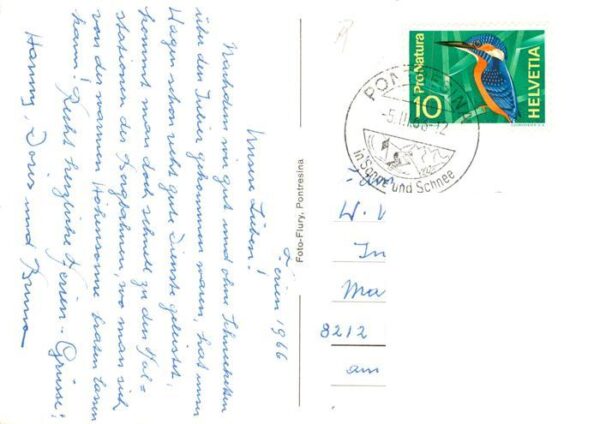 Ferien 1966
Meine Lieben!
Nachdem wir gut und ohne Schneeketten
über den Julier gekommen waren, hat unser
Wagen schon recht gute Dienste geleistet,
kommt man doch schnell zu den Tal=
stationen der Bergbahnen, wo man sich
von der warmen Höhensonne braten lassen
kann! Recht herzliche Ferien-Grüsse!
Hanny, Doris und Bruno
Foto-Flury, Pontresina
Pro Natura
10
HELVETIA
PONTRESINA
in Sonne und Schnee
W.
In
Ma
8212
am